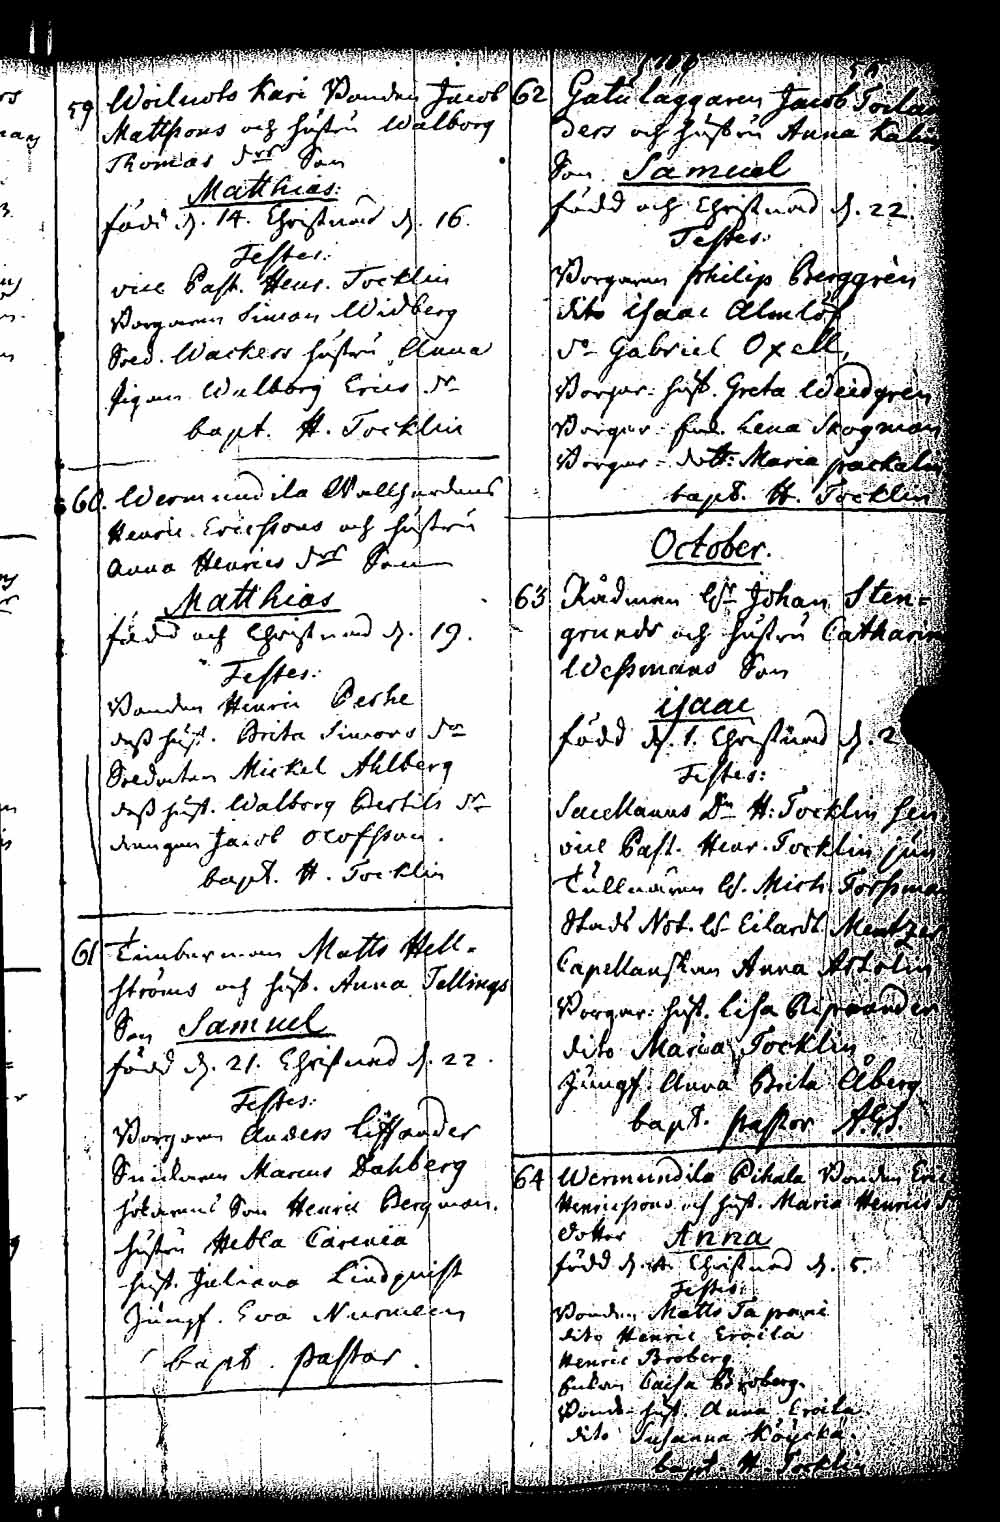 59 Woiluoto Kari Bonden Jacob
Mattssons och hustru Walborg
Thomas drs Son
Matthias.
född d. 14. Christnad d. 16.
Testes:
vice Past. Henr. Tocklin
Borgaren Simon Widberg
Sold. Wackers hustru Anna
Pigan Walborg Erics dr
bapt. H. Tocklin
60. Wermundila
Henric Ericssons och hustru
Anna Henrics drs Son
Matthias
född och Christnad d. 19.
Testes:
Bonden Henric
dess hust. Brita Simons dr
Soldaten Mickel Ahlberg
dess hust. Walborg Bertils dr
drengen Jacob Olofsson.
bapt. H. Tocklin
61 Timberman Matts Hell-
ströms och hust. Anna Tellings
Son Samuel
född d. 21. Christnad d. 22.
Testes:
Borgaren Anders
Snickaren Marcus Dahberg
Son Henric Bergman.
hustru Hebla
hust. Juliana Lindquist
Jungf. Eva
bapt. pastor.
62 Gatuläggaren Jacob
ders och hustru Anna
Son Samuel
född och Christnad d. 22.
Testes:
Borgaren Philip Berggrèn
dito Isaac Almlöf
do Gabriel Oxell,
Borgar-hust. Greta
Borgar- Lena Skogman
Borgar-dott: Maria
bapt. H. Tocklin
October.
63 Rådman Hr Johan Sten-
grunds och hustru Catharina
Wessmans Son
Isaac
född d. 1. Christnad d. 2
Testes:
Sacellanus Dn H: Tocklin sen
vice Past. Henr. Tocklin jun
Tullnären H. Mich. Forssman
Stads Not. Hr Eilardt Mentzer
Capellanskan Anna
Borgar-hust. Lisa
dito Maria Tocklin
Jungf. Anna Brita Åberg
bapt. pastor
64 Wermundila Bonden Eric
Henricssons och hust. Maria Henrics
dotter Anna
född d. Christnad d. 5.
Testes:
Bonden Matts Tapani
dito Henric Eroila
Henric Broberg
Caisa Broberg.
Bonde-hust. Anna Eroila.
dito Susanna
bapt. H. Tocklin